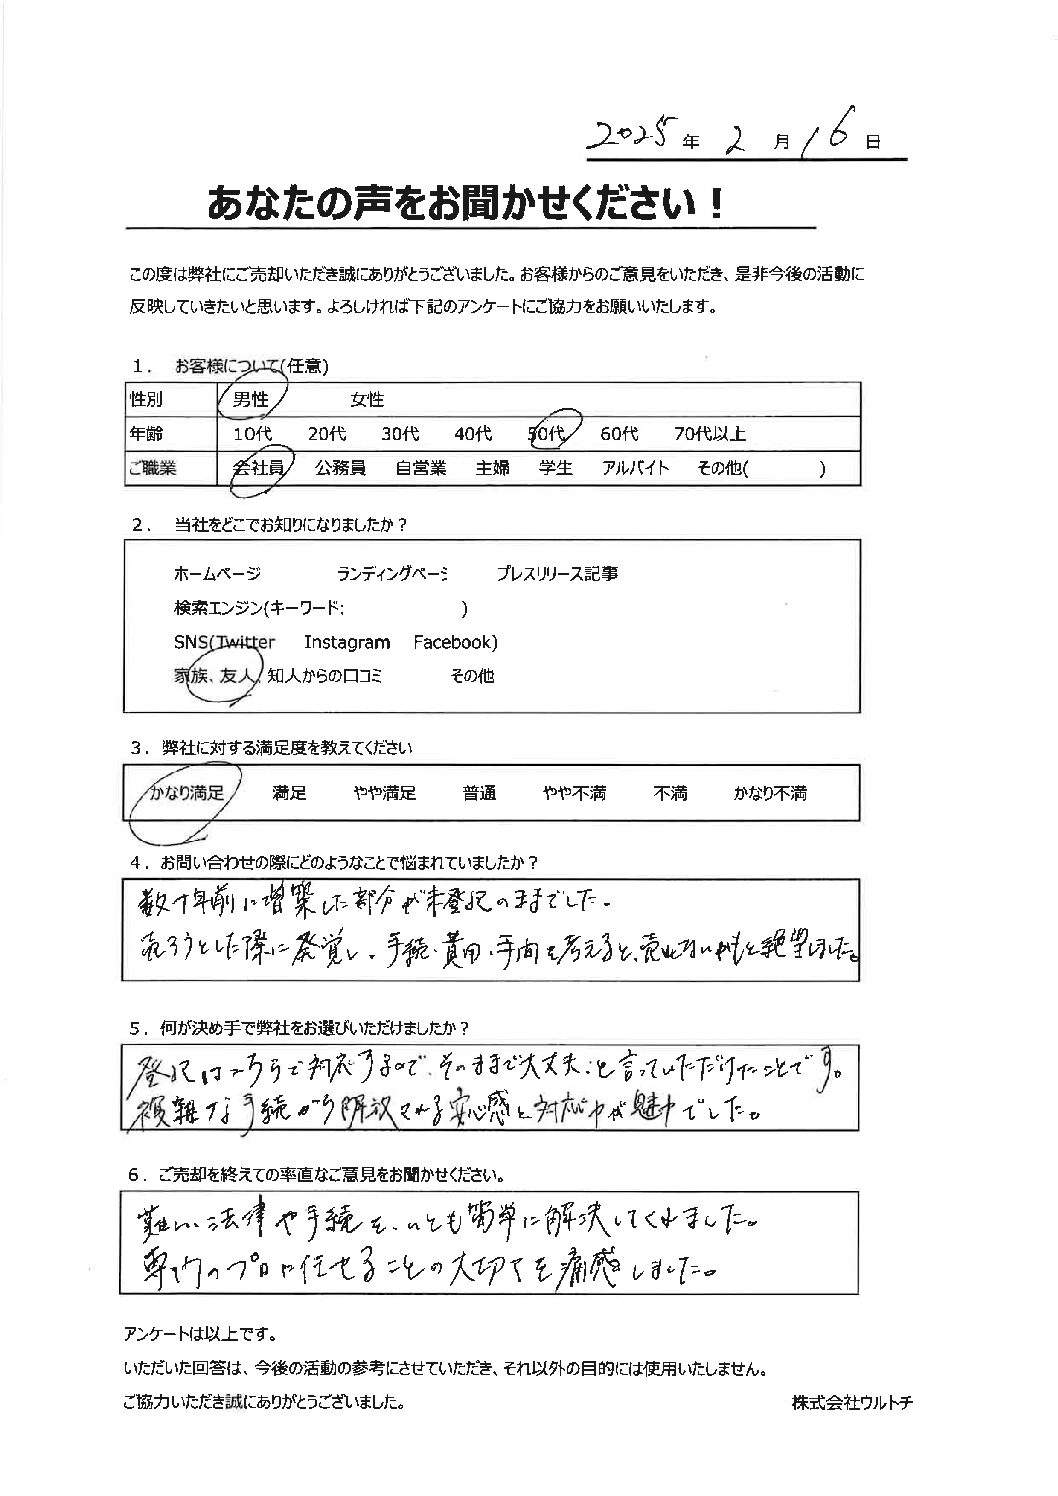 2025年 2月 16日
あなたの声をお聞かせください！
この度は弊社にご売却いただき誠にありがとうございました。お客様からのご意見をいただき、是非今後の活動に
反映していきたいと思います。よろしければ下記のアンケートにご協力をお願いいたします。
１． お客様について(任意)
性別 男性 女性
年齢 10代 20代 30代 40代 50代 60代 70代以上
ご職業 会社員 公務員 自営業 主婦 学生 アルバイト その他( )
２． 当社をどこでお知りになりましたか？
ホームページ ランディングページ プレスリリース記事
検索エンジン(キーワード: )
SNS(Twitter Instagram Facebook)
家族、友人、知人からの口コミ その他
３．弊社に対する満足度を教えてください
かなり満足 満足 やや満足 普通 やや不満 不満 かなり不満
４．お問い合わせの際にどのようなことで悩まれていましたか？
数十年前に増築した部分が未登記のままでした。
売ろうとした際に発覚し、手続・費用・手間を考えると、売れないかもと絶望しました。
５．何が決め手で弊社をお選びいただけましたか？
登記はこちらで対応するので、そのままで大丈夫、と言っていただけたことです。
複雑な手続から解放される安心感と対応力が魅力でした。
６．ご売却を終えての率直なご意見をお聞かせください。
難しい法律や手続を、いとも簡単に解決してくれました。
専門のプロに任せることの大切さを痛感しました。
アンケートは以上です。
いただいた回答は、今後の活動の参考にさせていただき、それ以外の目的には使用いたしません。
ご協力いただき誠にありがとうございました。
株式会社ウルトチ